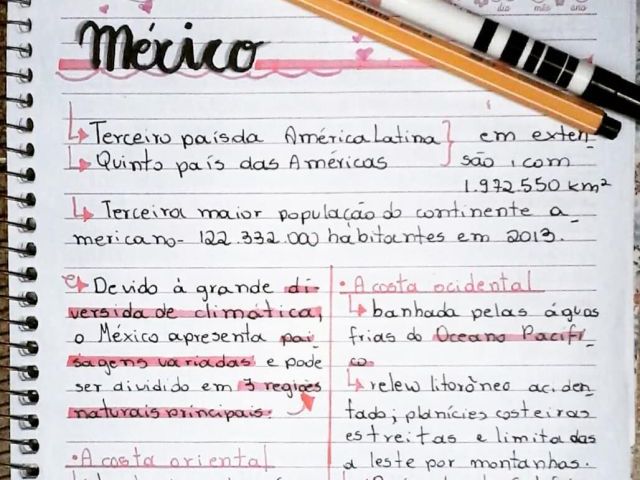 dia mês ano
México
Terceiro país da América Latina
Quinto país das Américas
em exten-
são, com
1.972.550 km²
Terceira maior população do continente a-
mericano- 122.332.000 habitantes em 2013.
Devido à grande di-
versidade climática,
o México apresenta pai-
sagens variadas e pode
ser dividido em 3 regiões
naturais principais.
• A costa oriental
• A costa ocidental
banhada pelas águas
frias do Oceano Pacífi-
co.
relevo litorâneo aciden-
tado; planícies costeiras
estreitas e limitadas
a leste por montanhas.